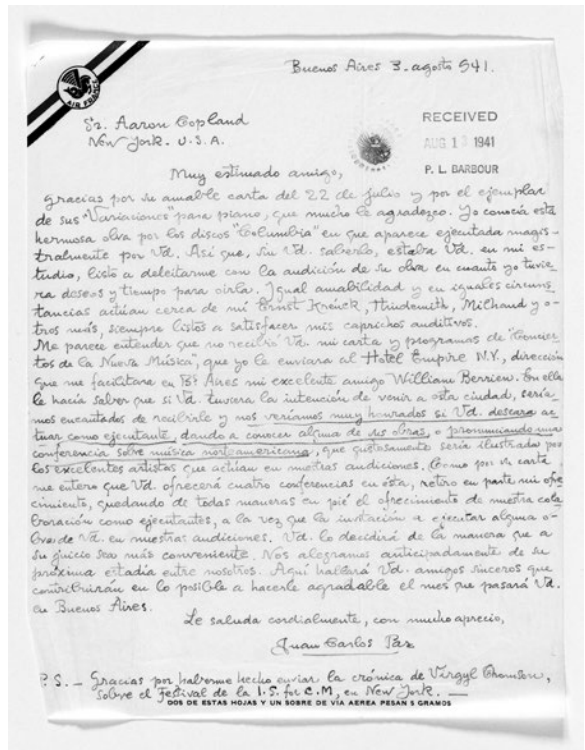 Buenos Aires 3. agosto 941.
AIR FRANCE
Sr. Aaron Copland
New York. U.S.A.
RECEIVED
AUG 13 1941
P. L. BARBOUR
Muy estimado amigo,
Gracias por su amable carta del 22 de julio y por el ejemplar
de sus "Variaciones" para piano, que mucho le agradezco. Yo conocía esta
hermosa obra por los discos "Columbia" en que aparece ejecutada magis-
tralmente por Vd. Así que, sin Vd. saberlo, estaba Vd. en mi es-
tudio, listo a deleitarme con la audición de su obra en cuanto yo tuvie-
ra deseos y tiempo para oirla. Igual amabilidad y en iguales circuns-
tancias actúan cerca de mí Ernst Kreneck, Hindemith, Milhaud y o-
tros más, siempre listos a satisfacer mis caprichos auditivos.
Me parece entender que no recibió Vd. mi carta y programas de "Concier-
tos de la Nueva Música", que yo le enviara al Hotel Empire N.Y., dirección
que me facilitara en Bs Aires mi excelente amigo William Berrien. En ella
le hacía saber que si Vd. tuviera la intención de venir a esta ciudad, sería-
mos encantados de recibirle y nos veríamos muy honrados si Vd. deseara ac-
tuar como ejecutante, dando a conocer alguna de sus obras, o pronunciando una
conferencia sobre música norteamericana, que gustosamente sería ilustrada por
los excelentes artistas que actúan en nuestras audiciones. Como por su carta
me entero que Vd. ofrecerá cuatro conferencias en ésta, retiro en parte mi ofre-
cimiento, quedando de todas maneras en pié el ofrecimiento de nuestra cola-
boración como ejecutantes, a la vez que la invitación a ejecutar alguna o-
bra de Vd. en nuestras audiciones. Vd. lo decidirá de la manera que a
su juicio sea más conveniente. Nos alegramos anticipadamente de su
próxima estadía entre nosotros. Aquí hallará Vd. amigos sinceros que
contribuirán en lo posible a hacerle agradable el mes que pasará Vd.
en Buenos Aires.
Le saluda cordialmente, con mucho aprecio,
Juan Carlos Paz
P.S. — Gracias por haberme hecho enviar la crónica de Virgyl Thomson,
sobre el Festival de la I.S. for C.M, en New York. —
DOS DE ESTAS HOJAS Y UN SOBRE DE VIA AEREA PESAN 5 GRAMOS